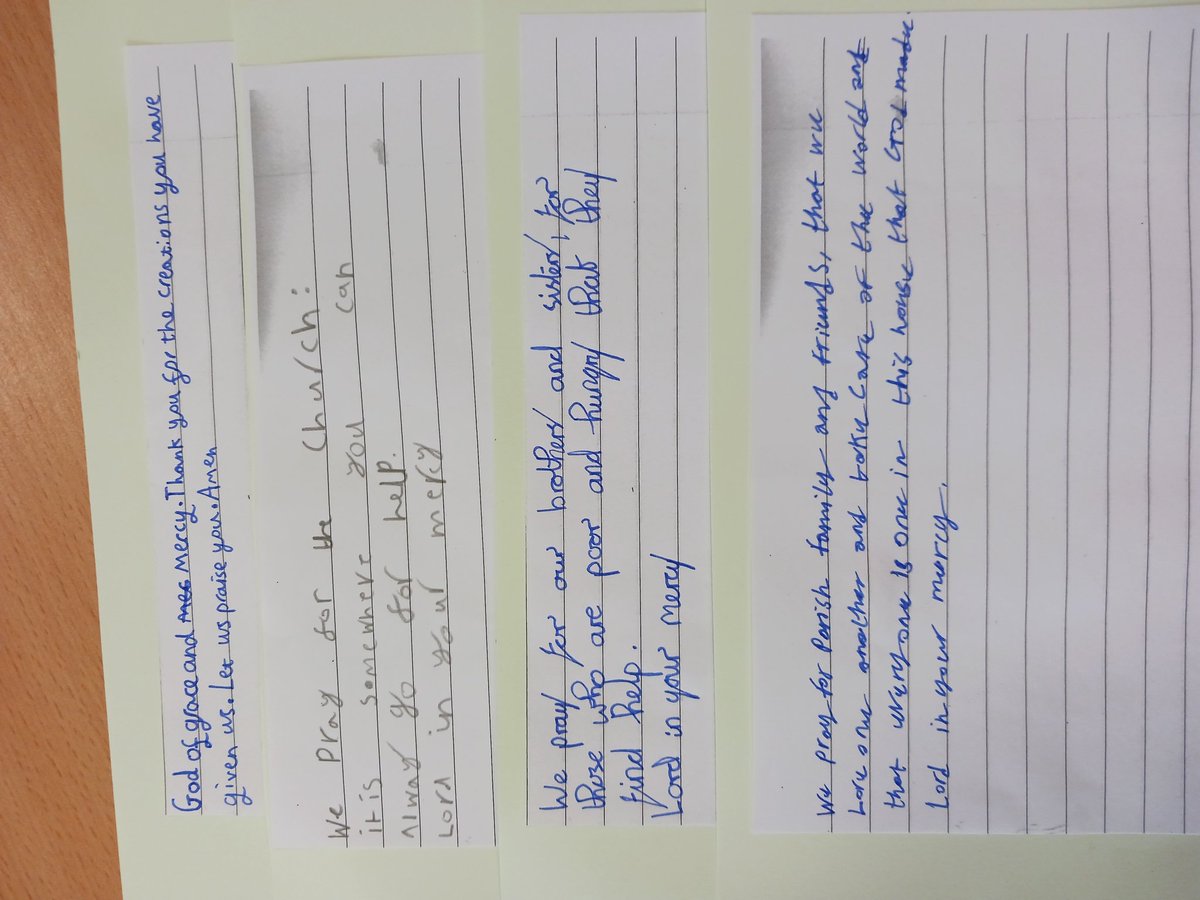 God of grace and mer Mercy. Thank you for the creations you have
given us. Let us praise you. Amen
We pray for the Church:
it is somewhere you can
Alway go for help.
Lord in your mercy
We pray for our brothers and sisters, for
those who are poor and hungry that they
find help.
Lord in your mercy
We pray for Parish family and friends, that we
Love one another and take care of the world and
that everyone is one in this house that God made.
Lord in your mercy.